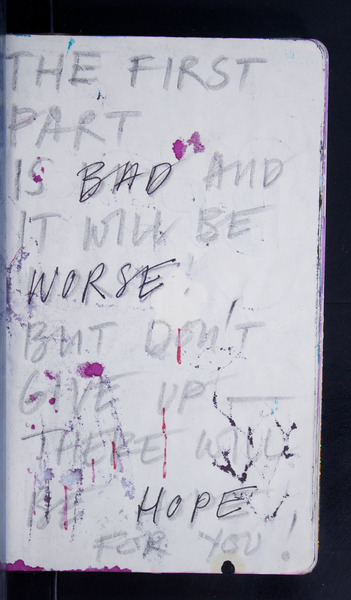 THE FIRST
PART
IS BAD AND
IT WILL BE
WORSE!
BUT DON'T
GIVE UP —
THERE WILL
BE HOPE
FOR YOU!